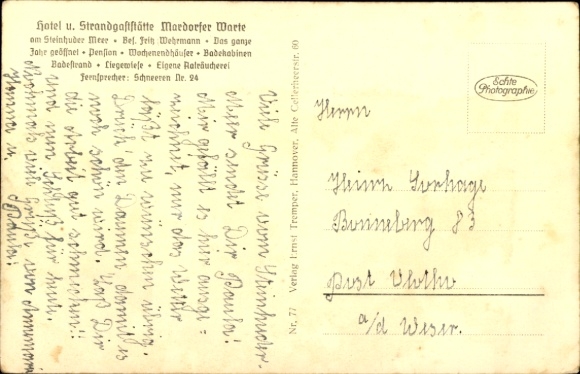 Hotel u. Strandgaststätte Mardorfer Warte
am Steinhuder Meer • Bes. Fritz Wehrmann • Das ganze
Jahr geöffnet • Pension • Wochenendhäuser • Badekabinen
Badestrand • Liegewiese • Eigene Aalräucherei
Fernsprecher: Schneeren Nr. 24
Viele Grüsse vom Steinhuder-
Meer sendet Dir Paula!
Mir gefällt es hier ausge=
zeichnet, nur das Wetter
läßt zu wünschen übrig.
Drück' den Daumen damit es
noch schön wird. Laß Dir
die Arbeit gut schmecken!!
und nun Schluß für heute.
Nochmals viele Grüße von
u. Paula!
Nr. 77 Verlag Ernst Tremper, Hannover, Alte Cellerheerstr. 60
Echte
Photographie
Herrn
Heinr. Sorhage
Bonneberg 83
Post Vlotho
a/d Weser.